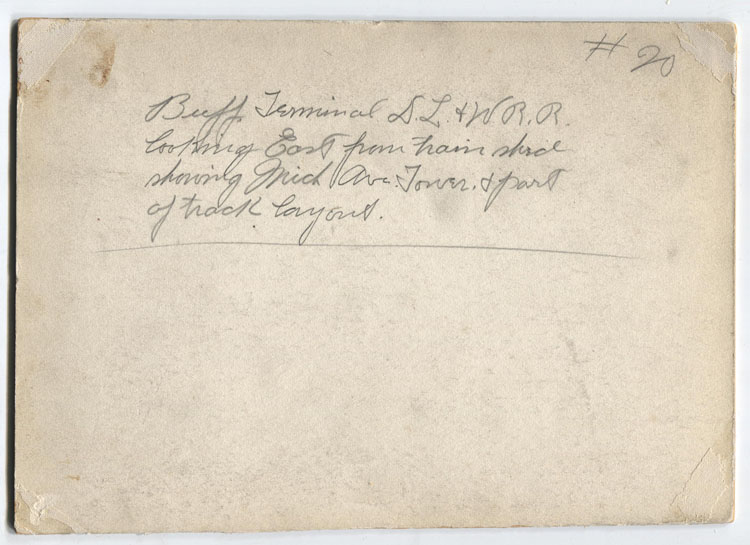 # 20
Buff. Terminal D.L. & W R.R.
looking East from train shed
showing Mich Ave. Tower. & part
of track layout.